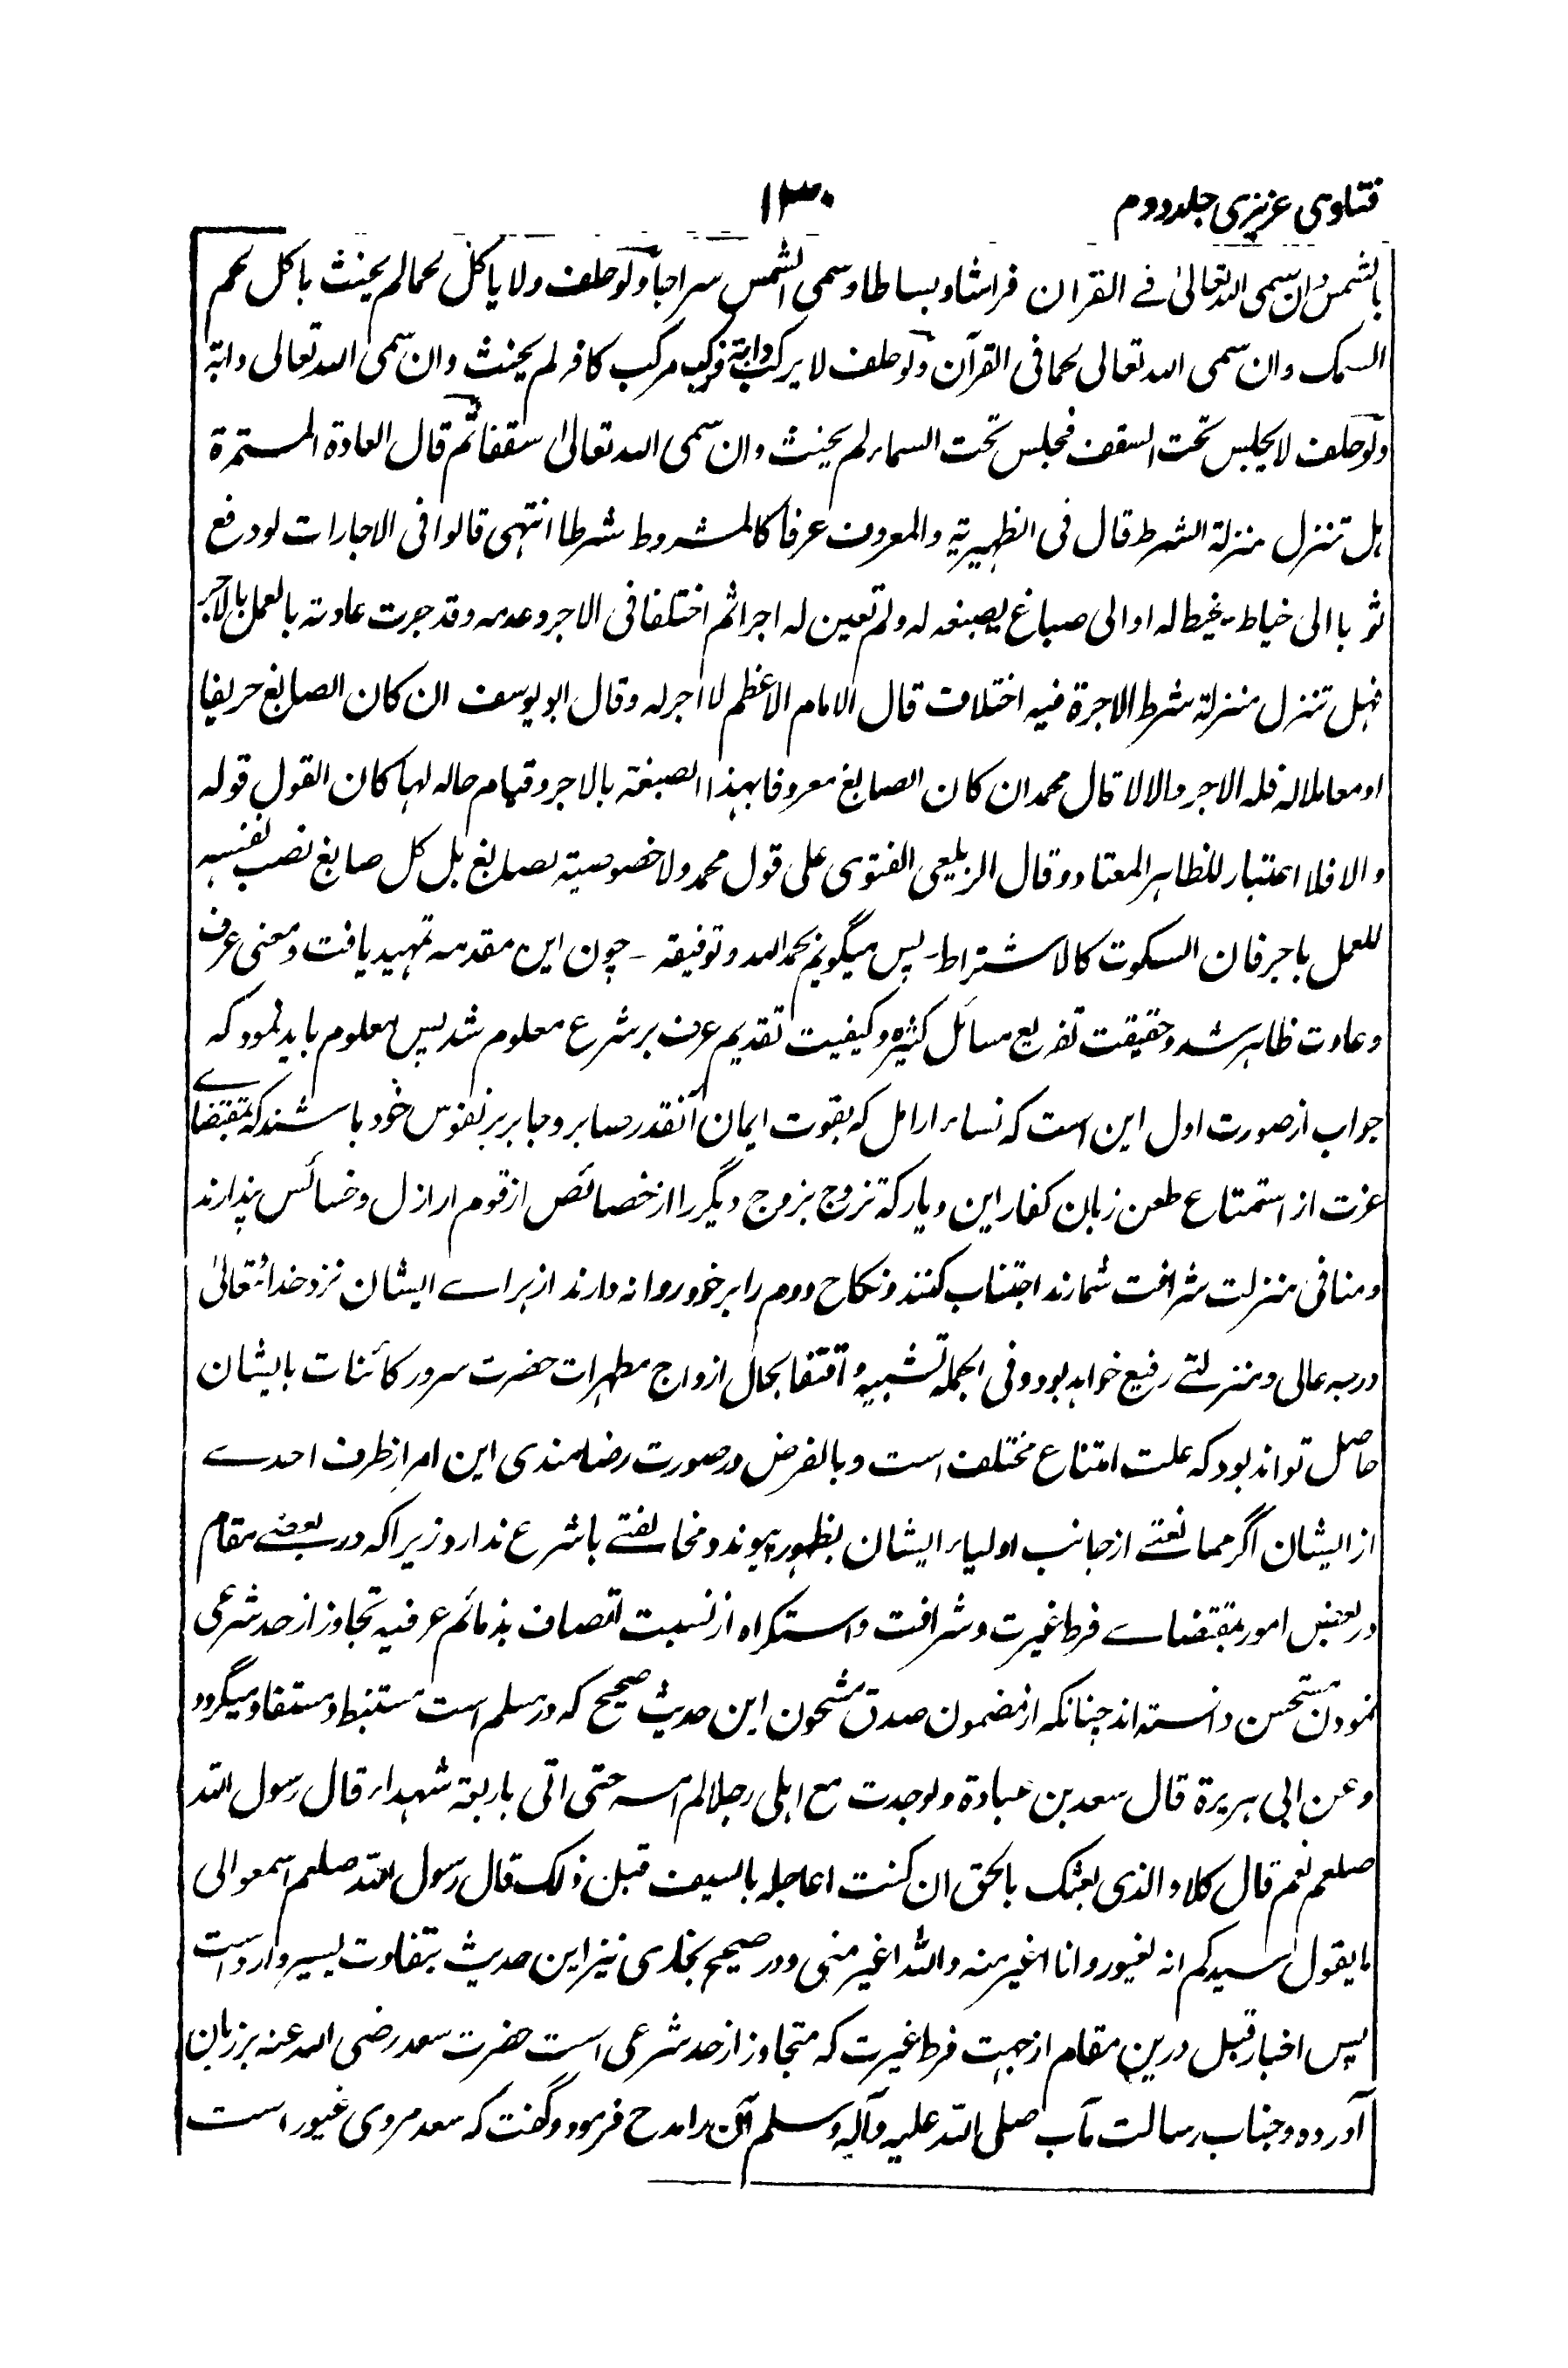 فتاوی عزیزی جلد دوم
۱۳۰
بالشمس وان سمی اللہ تعالیٰ فے القران فراشا وبساطا وسمی الشمس سراجا ولو حلف ولا یاکل لحمالم یحنث باکل لحم
السمک وان سمی اللہ تعالی لحما فی القرآن ولو حلف لا یرکب دابة فرکب مرکب کافر لم یحنث وان سمی اللہ تعالی دابة
ولو حلف لا یجلس تحت السقف فجلس تحت السماء لم یحنث وان سمی اللہ تعالیٰ سقفا ثم قال العادة المستمرة
ہل تنزل منزلة الشرط قال فی الظہیریة والمعروف عرفا کالمشروط شرطا انتہی قالوا فی الاجارات لو دفع
ثوبا الی خیاط یخیط له او الی صباغ یصبغہ له ولم تعین له اجرا ثم اختلفا فی الاجر وعدمہ وقد جرت عادتہ بالعمل بالاجر
فہل تنزل منزلة شرط الاجرة فیہ اختلاف قال الامام الاعظم لا اجر له وقال ابو یوسف ان کان الصابغ حریفا
او معاملا له فلہ الاجر والا لا قال محمد ان کان الصابغ معروفا بہذا الصبغة بالاجر وقیام حالہ لہا کان القول قولہ
والا فلا اعتبار للظاہر المعتاد وقال الزیلعی الفتوی علی قول محمد ولا خصوصیة لصابغ بل کل صابغ نصب نفسہ
للعمل باجر فان السکوت کالاشتراط - پس میگویم بحمد اللہ وتوفیقہ - چون این مقدمہ تمہید یافت ومعنی عرف
وعادت ظاہر شد وحقیقت تفریع مسائل کثیرہ وکیفیت تقدیم عرف بر شرع معلوم شد پس معلوم باید نمود که
جواب از صورت اول این است که نساء ارامل که بقوت ایمان آنقدر صابر وجابر بر نفوس خود باشند که بمقتضاے
عزت از استمتاع طعن زبان کفار این دیار که تزوج بزوج دیگر را از خصائص از قوم ارازل وخسائس پندارند
ومنافی منزلت شرافت شمارند اجتناب کنند ونکاح دوم را بر خود روا نہ دارند از براے ایشان نزد خداے تعالیٰ
درجہ عالی ومنزلتے رفیع خواہد بود وفی الجملة تشبیہ واقتفا بحال ازواج مطہرات حضرت سرور کائنات بایشان
حاصل تواند بود که علت امتناع مختلف است وبالفرض در صورت رضامندی این امر از طرف احدے
از ایشان اگر ممانعتے از جانب اولیاء ایشان بظہور پیوند ومخالفتے با شرع ندارد زیرا که در بعضے مقام
در بعض امور بمقتضاے فرط غیرت وشرافت واستکراہ از نسبت اتصاف بذمائم عرفیہ تجاوز از حد شرعی
نمودن مستحسن دانستہ اند چنانکہ از مضمون صدق مشحون این حدیث صحیح که در مسلم است مستنبط ومستفاد میگردد
وعن ابی ہریرة قال سعد بن عبادة ولو جدت مع اہلی رجلا لم امسہ حتی اتی باربعة شہداء قال رسول اللہ
صلعم نعم قال کلا والذی بعثک بالحق ان کنت اعاجلہ بالسیف قبل ذلک قال رسول اللہ صلعم اسمعوا لی
ما یقول سیدکم انہ لغیور وانا اغیر منہ واللہ اغیر منی ودر صحیح بخاری نیز این حدیث بتفاوت یسیر وارد است
پس اخبار قبل درین مقام از جہت فرط غیرت که متجاوز از حد شرعی است حضرت سعد رضی اللہ عنہ بر زبان
آوردہ وجناب رسالت مآب صلی اللہ علیہ وآلہ وسلم آن را مدح فرمود وگفت که سعد مروی غیور است